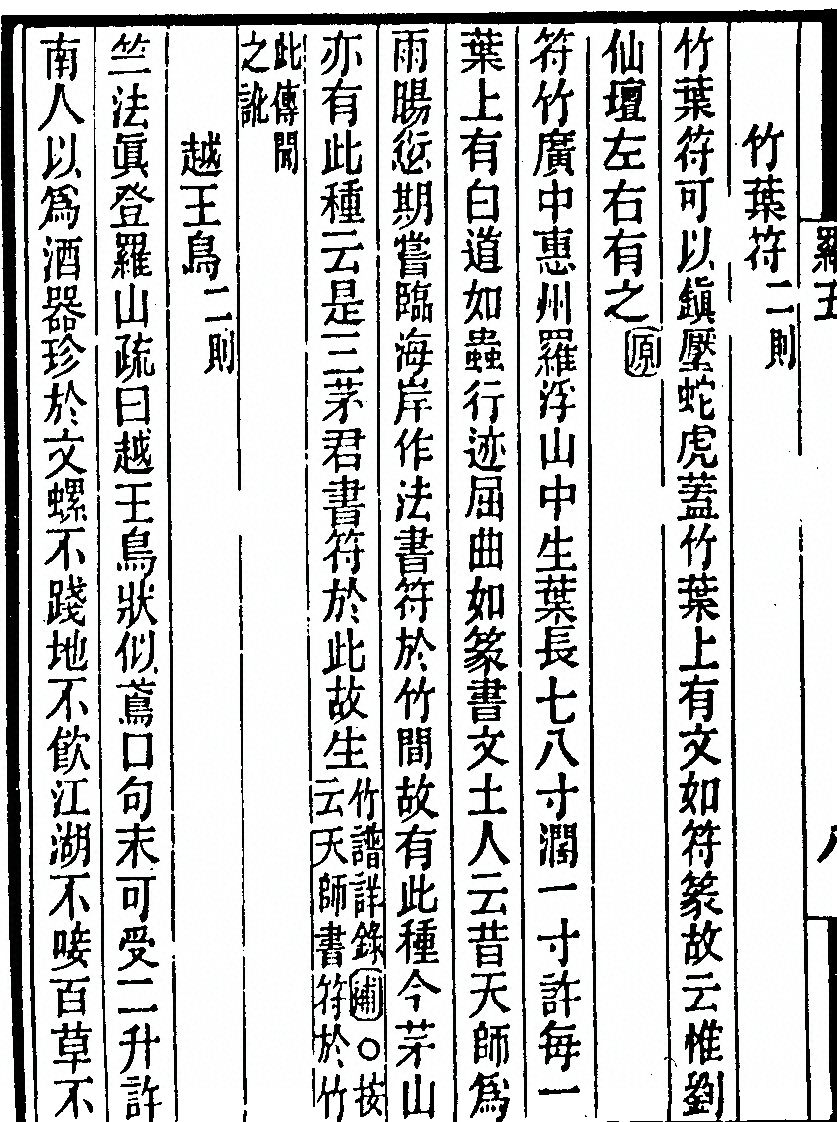 竹葉符二則
竹葉符可以鎮壓蛇虎蓋竹葉上有文如符篆故云惟劉
仙壇左右有之原
符竹廣中惠州羅浮山中生葉長七八寸濶一寸許每一
葉上有白道如蟲行迹屈曲如篆書文土人云昔天師爲
雨暘愆期嘗臨海岸作法書符於竹間故有此種今茅山
亦有此種云是三茅君書符於此故生竹譜詳錄補○按
云天師書符於竹
此傳聞
之訛
越王鳥二則
竺法眞登羅山疏曰越王鳥狀似鳶口句末可受二升許
南人以爲酒器珍於文螺不踐地不飮江湖不唼百草不